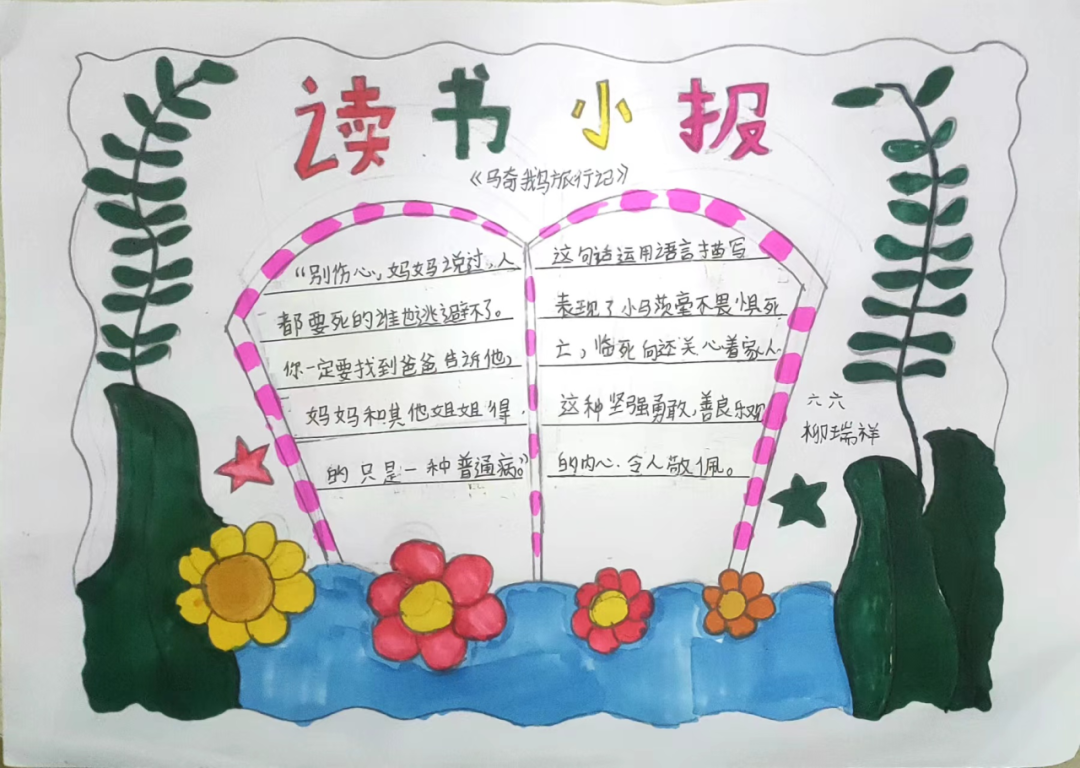 读书小报
《骑鹅旅行记》
“别伤心,妈妈说过,人
都要死的谁也逃避不了。
你一定要找到爸爸告诉他,
妈妈和其他姐姐得
的只是一种普通病。”
这句话运用语言描写
表现了小马茨毫不畏惧死
亡,临死前还关心着家人.
这种坚强勇敢,善良乐观
的内心.令人敬佩。
六六
柳瑞祥